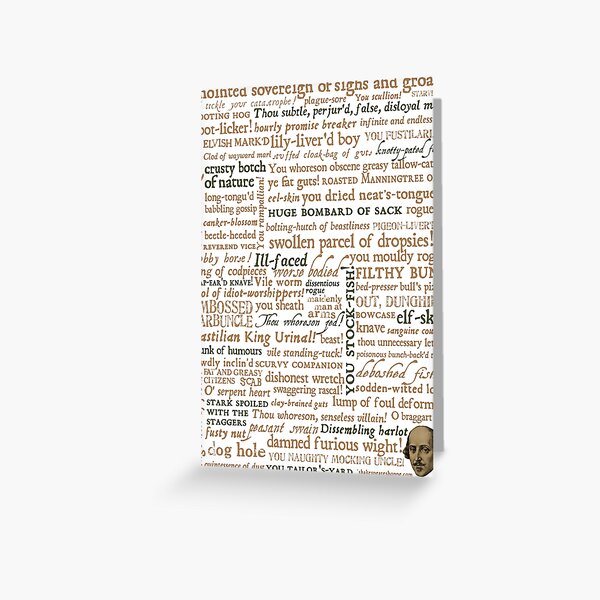 nointed sovereign of sighs and groa
tickle your catastrophe! plague-sore You scullion! STARV
OOTING HOG Thou subtle, perjur'd, false, disloyal m
oot-licker! hourly promise breaker infinite and endless
ELVISH MARK'D lily-liver'd boy YOU FUSTILARI
Clod of wayward marl stuffed cloak-bag of guts knotty-pated f
crusty botch of nature You whoreson obscene greasy tallow-cat
ye fat guts! ROASTED MANNINGTREE O
long-tongu'd babbling gossip You rampallian! eel-skin you dried neat's-tongue
HUGE BOMBARD OF SACK rogue
canker-blossom bolting-hutch of beastliness PIGEON-LIVER'
beetle-heeded
REVEREND VICE swollen parcel of dropsies!
bby horse! Ill-faced you mouldy rog
ng of codpieces worse bodied FILTHY BUN
AP-EAR'D KNAVE! Vile worm dissentious rogue YOU STOCK-FISH! bed-presser bull's piz
ol of idiot-worshippers! maidenly man at arms OUT, DUNGHI
MBOSSED ARBUNCLE you sheath BOWCASE elf-sk
Thou whoreson zed! knave sanguine cou
astilian King Urinal! beast! thou unnecessary let
nk of humours vile standing-tuck! poisonous bunch-back'd t
wdly inclin'd SCURVY COMPANION deboshed fish
FAT AND GREASY CITIZENS SCAB dishonest wretch sodden-witted lo
O' serpent heart swaggering rascal!
STARK SPOILED WITH THE STAGGERS clay-brained guts lump of foul deform
Thou whoreson, senseless villain! O braggart
fusty nut peasant swain Dissembling harlot
dog hole damned furious wight!
YOU NAUGHTY MOCKING UNCLE!
quintessence of dust YOU TAILOR'S-YARD